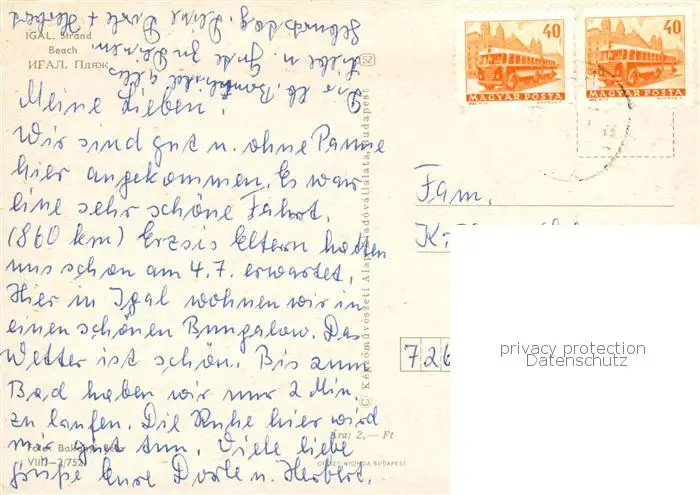 IGAL. Strand
Beach
ИГАЛ. Пляж
Meine Lieben!
Wir sind gut u. ohne Panne
hier angekommen. Es war
eine sehr schöne Fahrt.
(860 km) Erzsis Eltern hatten
uns schon am 4.7. erwartet.
Hier in Igal wohnen wir in
einen schönen Bungalow. Das
Wetter ist schön. Bis zum
Bad haben wir nur 2 Min.
zu laufen. Die Ruhe hier wird
mir gut tun. Viele liebe
Grüße Eure Dorle u. Herbert.
Dir lb. alles
Liebe u. Gute zu Deinem
Geburtstag. Deine Dorle + Herbert
Foto:
VIII—2/752
© Képzőművészeti Alap Kiadóvállalata, Budapest
SZ
Ára: 2,— Ft
OFFSET NYOMDA BUDAPEST
40
MAGYAR POSTA
40
MAGYAR POSTA
Fam.
726
privacy protection
Datenschutz